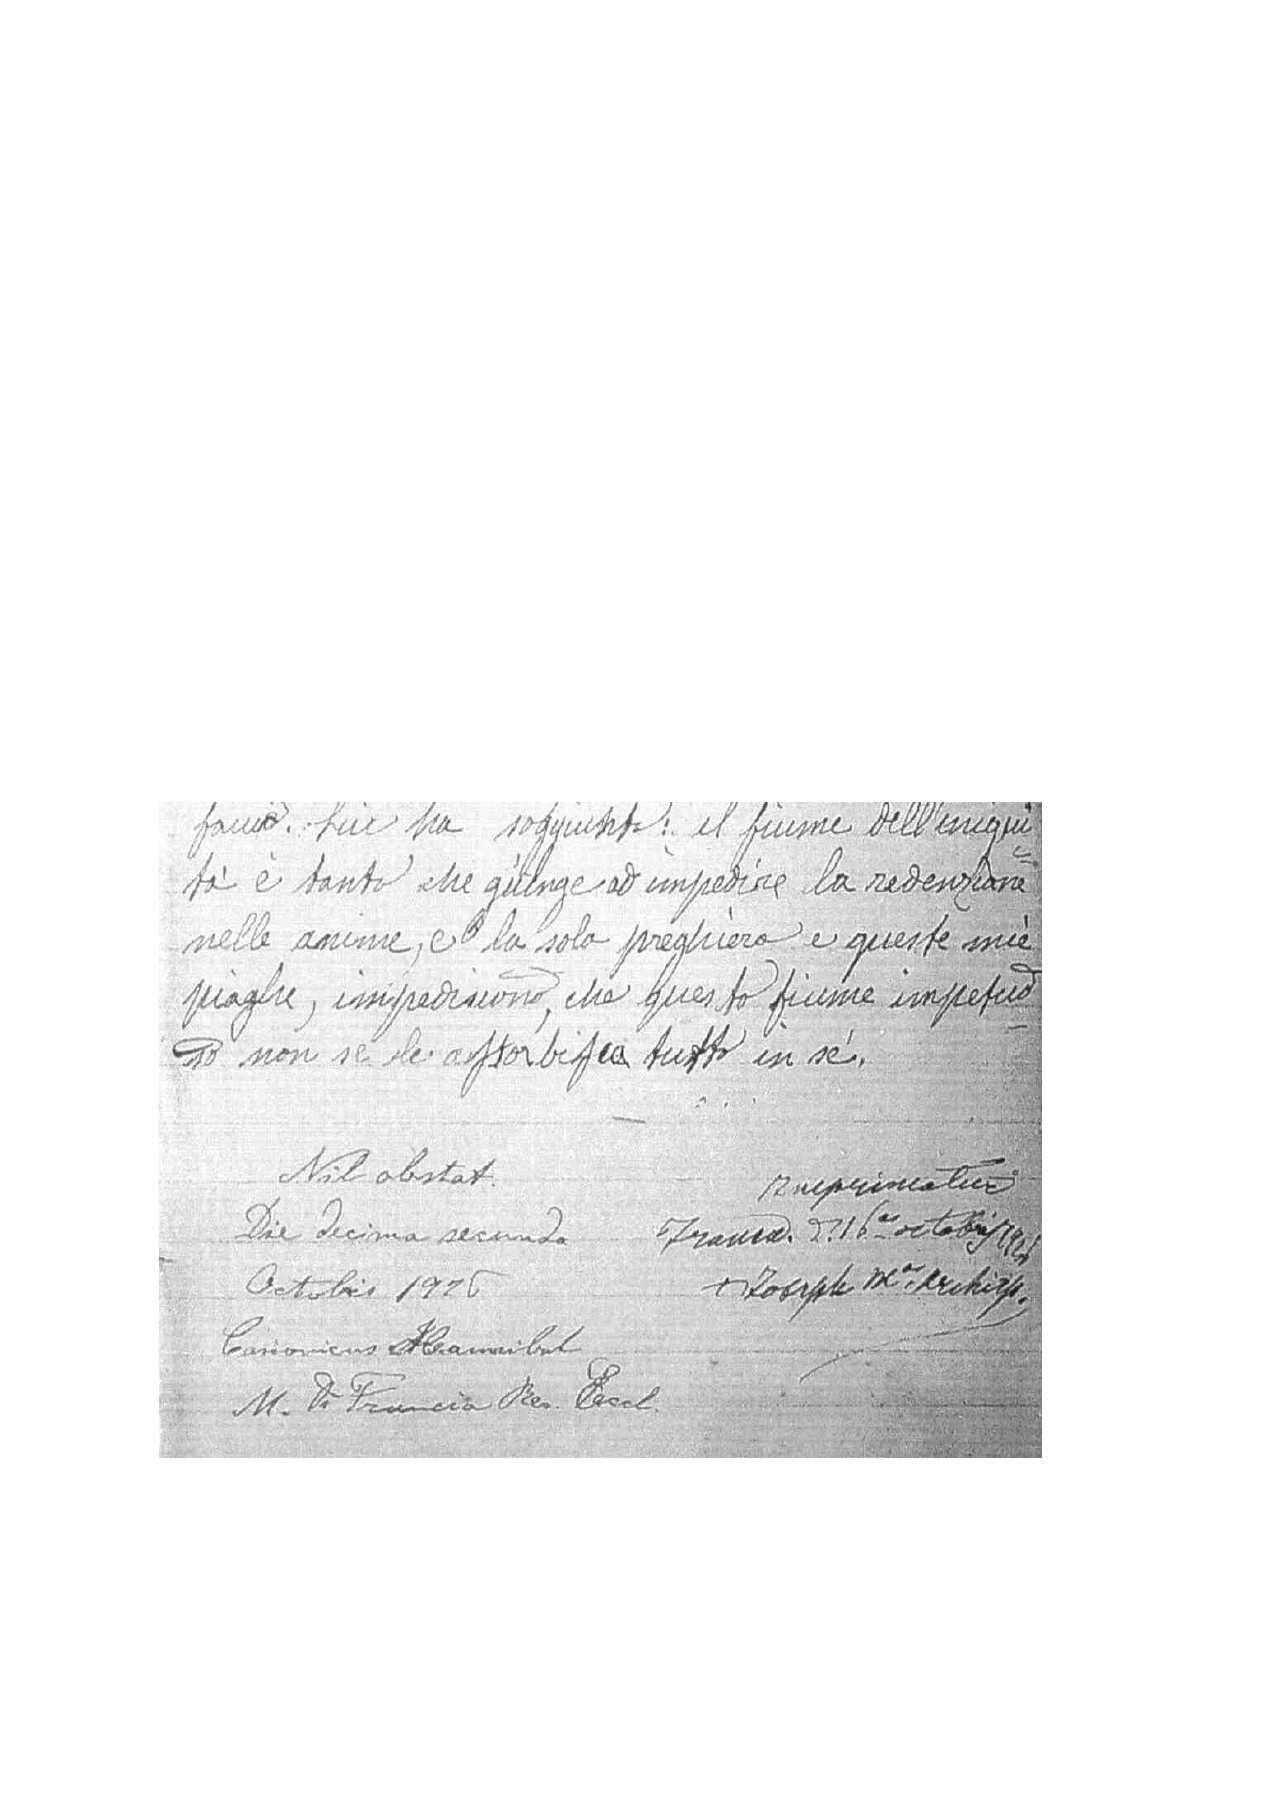 faccio. Lui ha soggiunto: il fiume dell'iniqui
tà è tanto che giunge ad impedire la redenzione
nelle anime, e la sola preghiera e queste mie
piaghe, impediscono, che questo fiume impetuo
so non se le assorbisca tutto in sé.
Nil obstat.
Die decima secunda
Octobris 1926
Canonicus Hannibal
M. Di Francia Rev. Eccl.
Imprimatur
16 octobris
+ Joseph M.a Archiep.